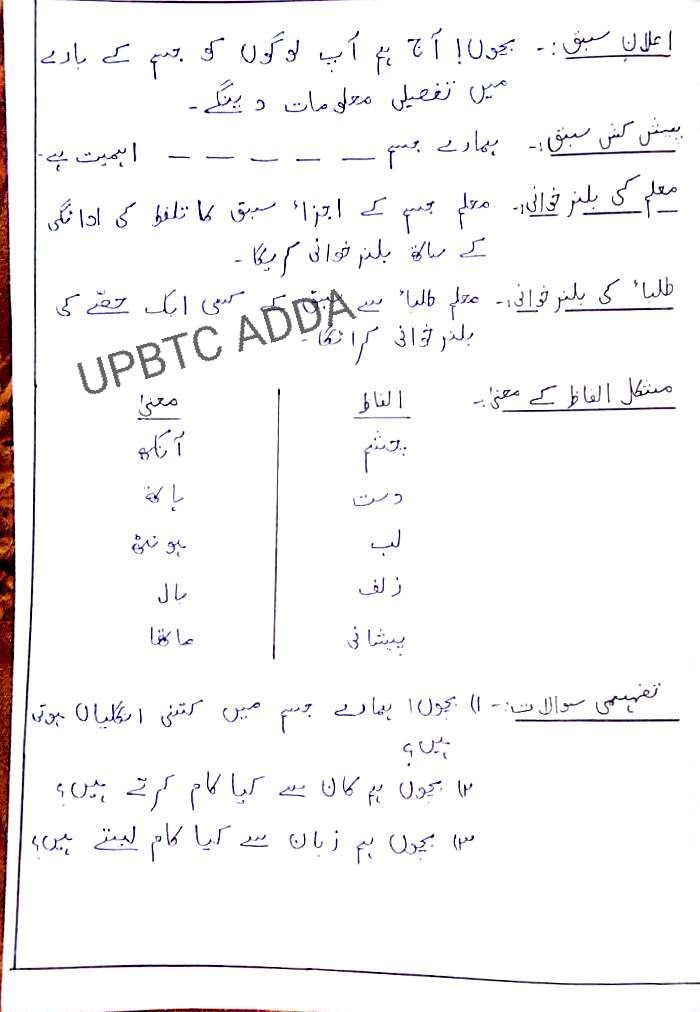 اعلانِ سبق :۔ بچوں! آج ہم آپ لوگوں کو جسم کے بارے
میں تفصیلی معلومات دینگے۔
پیش کش سبق :۔ ہمارے جسم _ _ _ _ _ اہمیت ہے۔
معلم کی بلند خوانی :۔ معلم جسم کے اجزاء سبق کا تلفظ کی ادائگی
کے ساتھ بلند خوانی کریگا۔
طلباء کی بلند خوانی :۔ معلم طلباء سے سبق کے کسی ایک حصّے کی
بلند خوانی کرائگا۔
UPBTC ADDA
مشکل الفاظ کے معنیٰ :۔ الفاظ معنیٰ
چشم آنکھ
دست ہاتھ
لب ہونٹھ
زلف بال
پیشانی ماتھا
تفہیمی سوالات :۔ ۱) بچوں! ہمارے جسم میں کتنی انگلیاں ہوتی
ہیں؟
۲) بچوں ہم کان سے کیا کام کرتے ہیں؟
۳) بچوں ہم زبان سے کیا کام لیتے ہیں؟